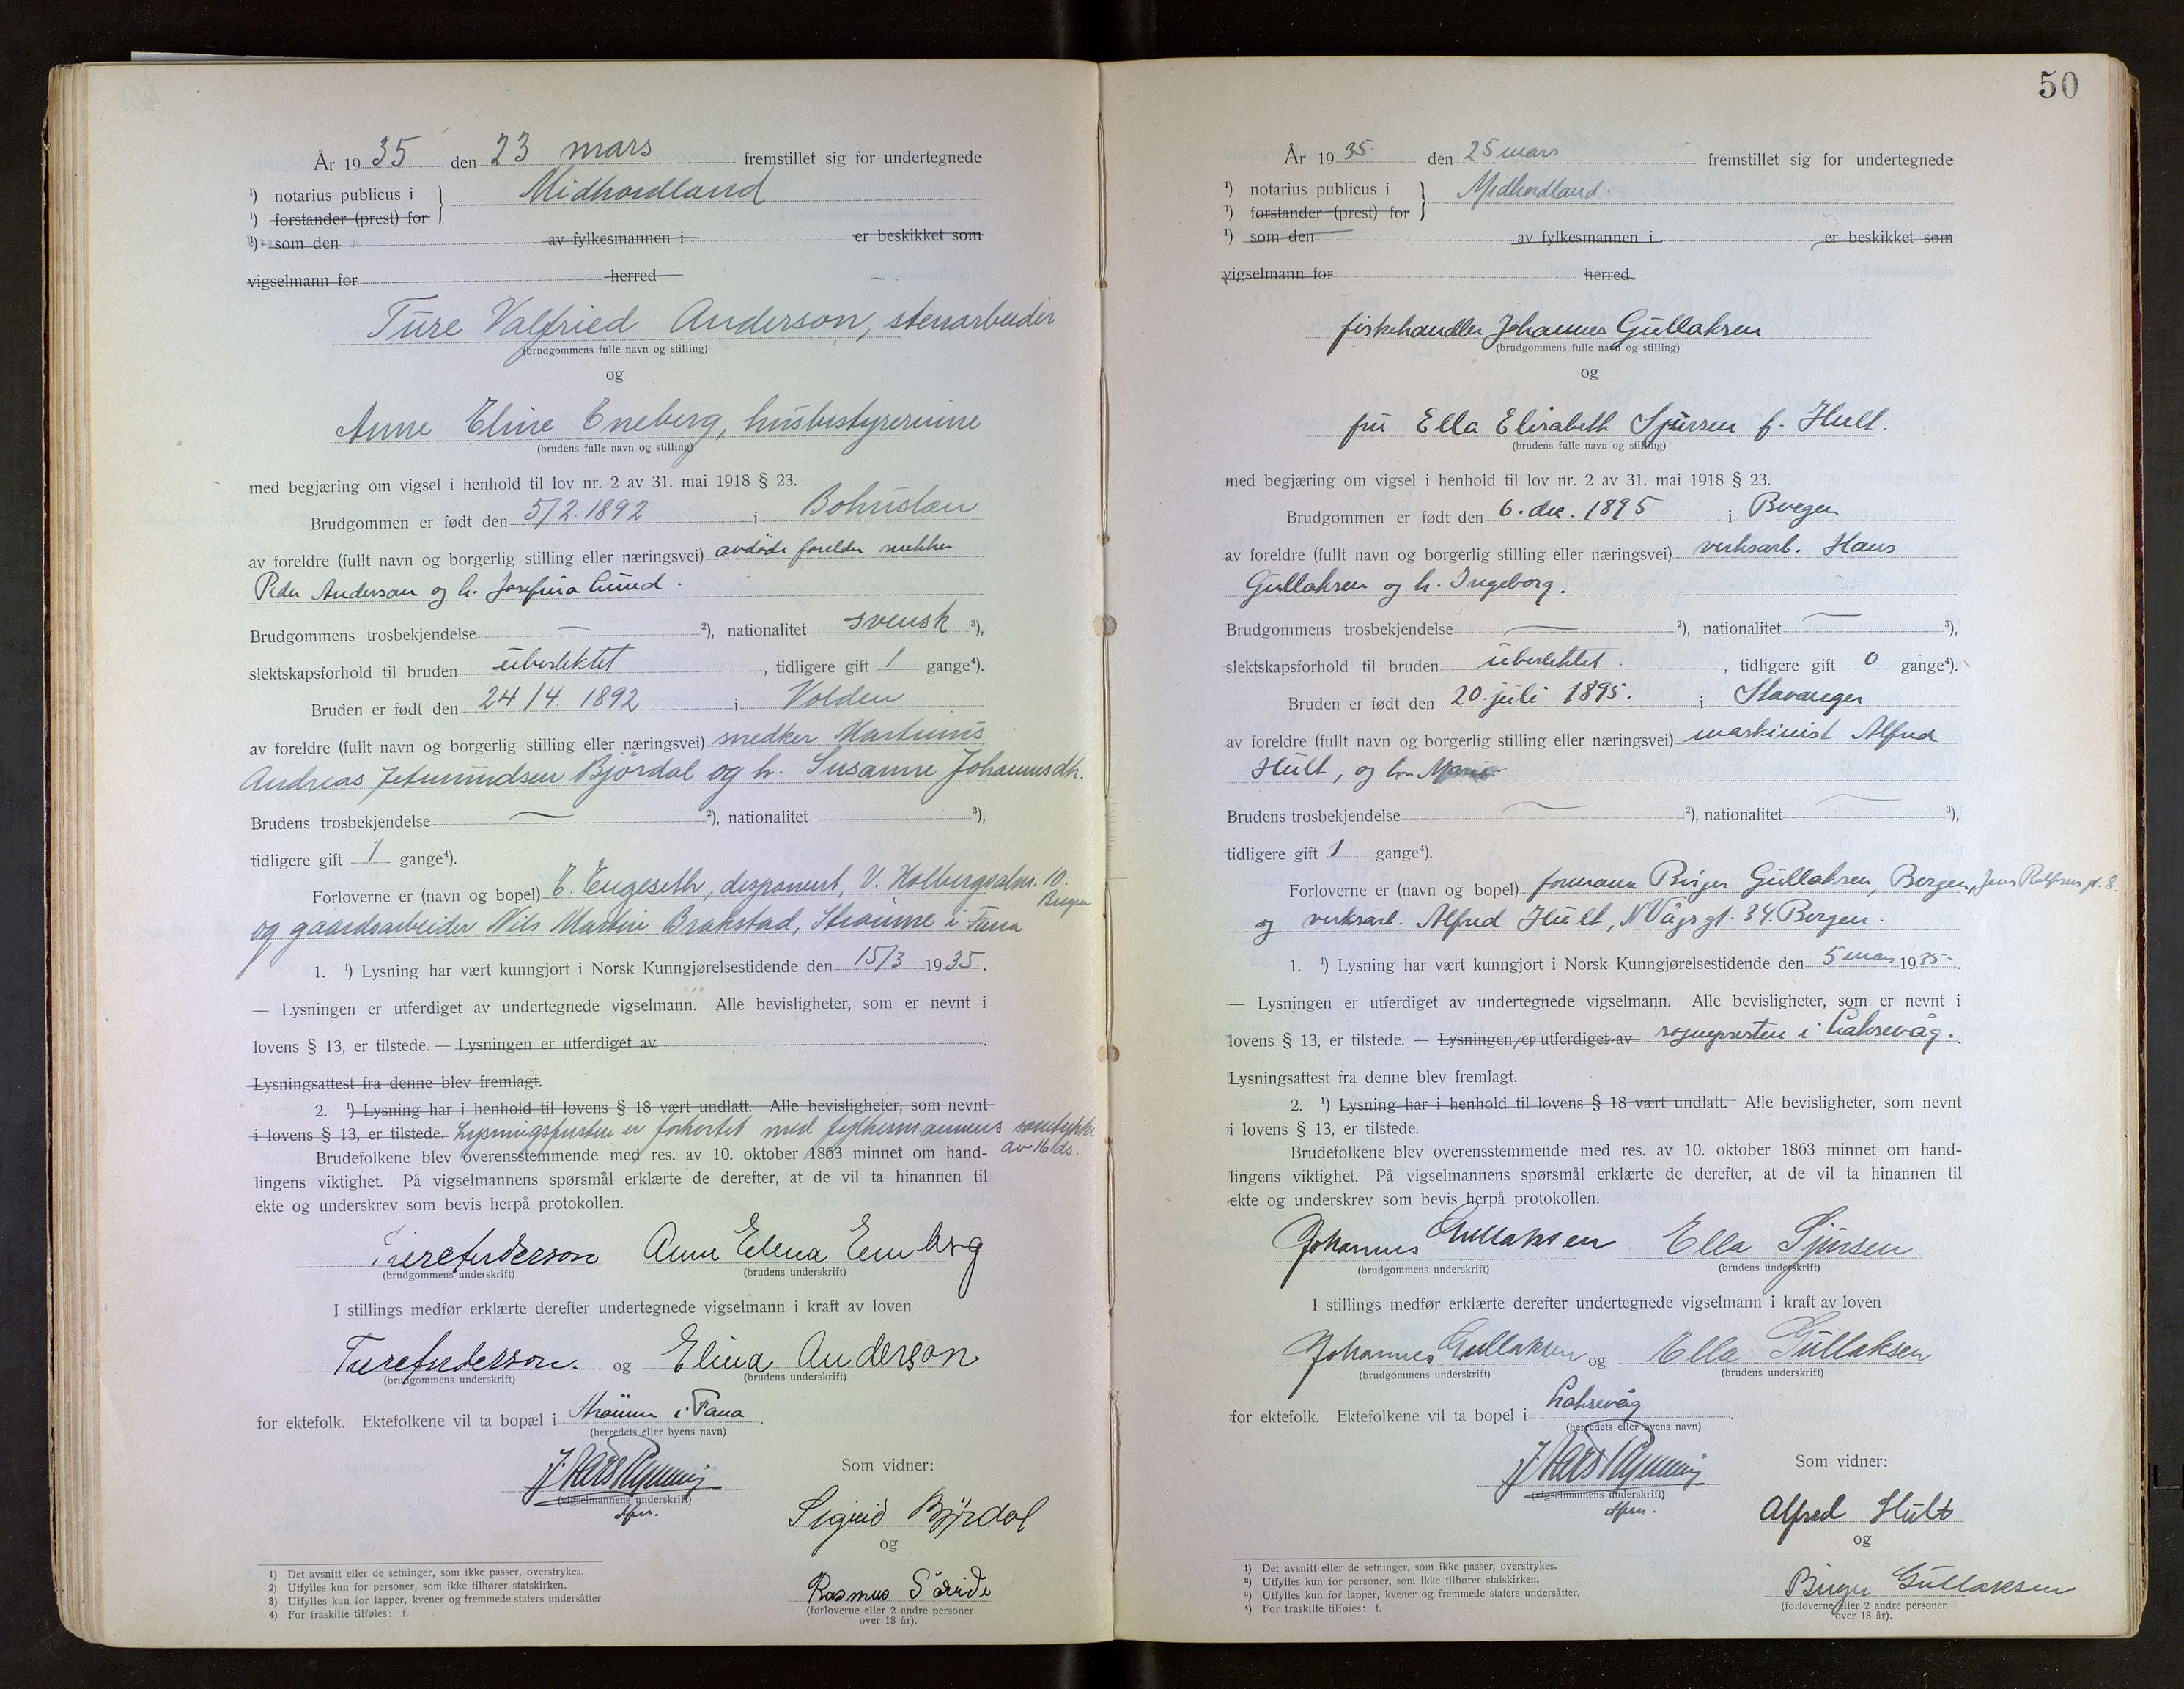 År 19 35 den 23 mars fremstillet sig for undertegnede
¹) notarius publicus i } Midhordland
¹) forstander (prest) for
¹) som den av fylkesmannen i er beskikket som
vigselmann for herred
Ture Valfried Anderson, stenarbeider
(brudgommens fulle navn og stilling)
og
Anne Eline Eneberg, husbestyrerinne
(brudens fulle navn og stilling)
med begjæring om vigsel i henhold til lov nr. 2 av 31. mai 1918 § 23.
Brudgommen er født den 5/2. 1892 i Bohuslen
av foreldre (fullt navn og borgerlig stilling eller næringsvei) avdøde forelder
Peder Anderson og h. Josefina Lund.
Brudgommens trosbekjendelse — ²), nationalitet svensk ³),
slektskapsforhold til bruden ubeslektet, tidligere gift 1 gange⁴).
Bruden er født den 24/4. 1892 i Volden
av foreldre (fullt navn og borgerlig stilling eller næringsvei) snedker Martinus
Andreas Jetmundsen Bjørdal og h. Susanne Johannesdtr.
Brudens trosbekjendelse — ²), nationalitet ³),
tidligere gift 1 gange⁴).
Forloverne er (navn og bopel) E. Engeseth, disponent, V. Holbergsalm. 10. Bergen
og gaardsarbeider Nils Martin Brakstad, Straume i Fana
1. ¹) Lysning har vært kunngjort i Norsk Kunngjørelsestidende den 15/3 1935.
— Lysningen er utferdiget av undertegnede vigselmann. Alle bevisligheter, som er nevnt i
lovens § 13, er tilstede. — Lysningen er utferdiget av .
Lysningsattest fra denne blev fremlagt.
2. ¹) Lysning har i henhold til lovens § 18 vært undlatt. Alle bevisligheter, som nevnt
i lovens § 13, er tilstede. Lysningsfristen er forkortet med fylkesmannens samtykke
av 16 ds.
Brudefolkene blev overensstemmende med res. av 10. oktober 1863 minnet om hand-
lingens viktighet. På vigselmannens spørsmål erklærte de derefter, at de vil ta hinannen til
ekte og underskrev som bevis herpå protokollen.
Ture Anderson Anne Elena Eneberg
(brudgommens underskrift) (brudens underskrift)
I stillings medfør erklærte derefter undertegnede vigselmann i kraft av loven
Ture Anderson. og Elina Anderson
(brudgommens underskrift) (brudens underskrift)
for ektefolk. Ektefolkene vil ta bopæl i Straume i Fana.
(herredets eller byens navn)
(vigselmannens underskrift)
Som vidner:
Sigrid Bjørdal
og
Rasmus Søvide
(forloverne eller 2 andre personer
over 18 år).
1) Det avsnitt eller de setninger, som ikke passer, overstrykes.
2) Utfylles kun for personer, som ikke tilhører statskirken.
3) Utfylles kun for lapper, kvener og fremmede staters undersåtter
4) For fraskilte tilføies: f.
50
År 19 35. den 25 mars fremstillet sig for undertegnede
¹) notarius publicus i } Midhordland.
¹) forstander (prest) for
¹) som den av fylkesmannen i er beskikket som
vigselmann for herred
fiskehandler Johannes Gullaksen
(brudgommens fulle navn og stilling)
og
fru Ella Elisabeth Sjursen f. Hult.
(brudens fulle navn og stilling)
med begjæring om vigsel i henhold til lov nr. 2 av 31. mai 1918 § 23.
Brudgommen er født den 6. des. 1895 i Bergen
av foreldre (fullt navn og borgerlig stilling eller næringsvei) verksarb. Hans
Gullaksen og h. Ingeborg.
Brudgommens trosbekjendelse — ²), nationalitet — ³),
slektskapsforhold til bruden ubeslektet., tidligere gift 0 gange⁴).
Bruden er født den 20. juli 1895. i Stavanger
av foreldre (fullt navn og borgerlig stilling eller næringsvei) maskinist Alfred
Hult, og h. Marie
Brudens trosbekjendelse — ²), nationalitet — ³),
tidligere gift 1 gange⁴).
Forloverne er (navn og bopel) formann Birger Gullaksen, Bergen, Jens Rolfsens gt. 8.
og verksarb. Alfred Hult, N Vågsgt. 34. Bergen.
1. ¹) Lysning har vært kunngjort i Norsk Kunngjørelsestidende den 5 mars 1935.
— Lysningen er utferdiget av undertegnede vigselmann. Alle bevisligheter, som er nevnt i
lovens § 13, er tilstede. — Lysningen er utferdiget av sognepresten i Laksevåg.
Lysningsattest fra denne blev fremlagt.
2. ¹) Lysning har i henhold til lovens § 18 vært undlatt. Alle bevisligheter, som nevnt
i lovens § 13, er tilstede.
Brudefolkene blev overensstemmende med res. av 10. oktober 1863 minnet om hand-
lingens viktighet. På vigselmannens spørsmål erklærte de derefter, at de vil ta hinannen til
ekte og underskrev som bevis herpå protokollen.
Johannes Gullaksen Ella Sjursen
(brudgommens underskrift) (brudens underskrift)
I stillings medfør erklærte derefter undertegnede vigselmann i kraft av loven
Johannes Gullaksen og Ella Gullaksen
(brudgommens underskrift) (brudens underskrift)
for ektefolk. Ektefolkene vil ta bopel i Laksevåg.
(herredets eller byens navn)
(vigselmannens underskrift)
Som vidner:
Alfred Hult
og
Birger Gullaksen
(forloverne eller 2 andre personer
over 18 år).
1) Det avsnitt eller de setninger, som ikke passer, overstrykes.
²) Utfylles kun for personer, som ikke tilhører statskirken.
³) Utfylles kun for lapper, kvener og fremmede staters undersåtter.
⁴) For fraskilte tilføies: f.